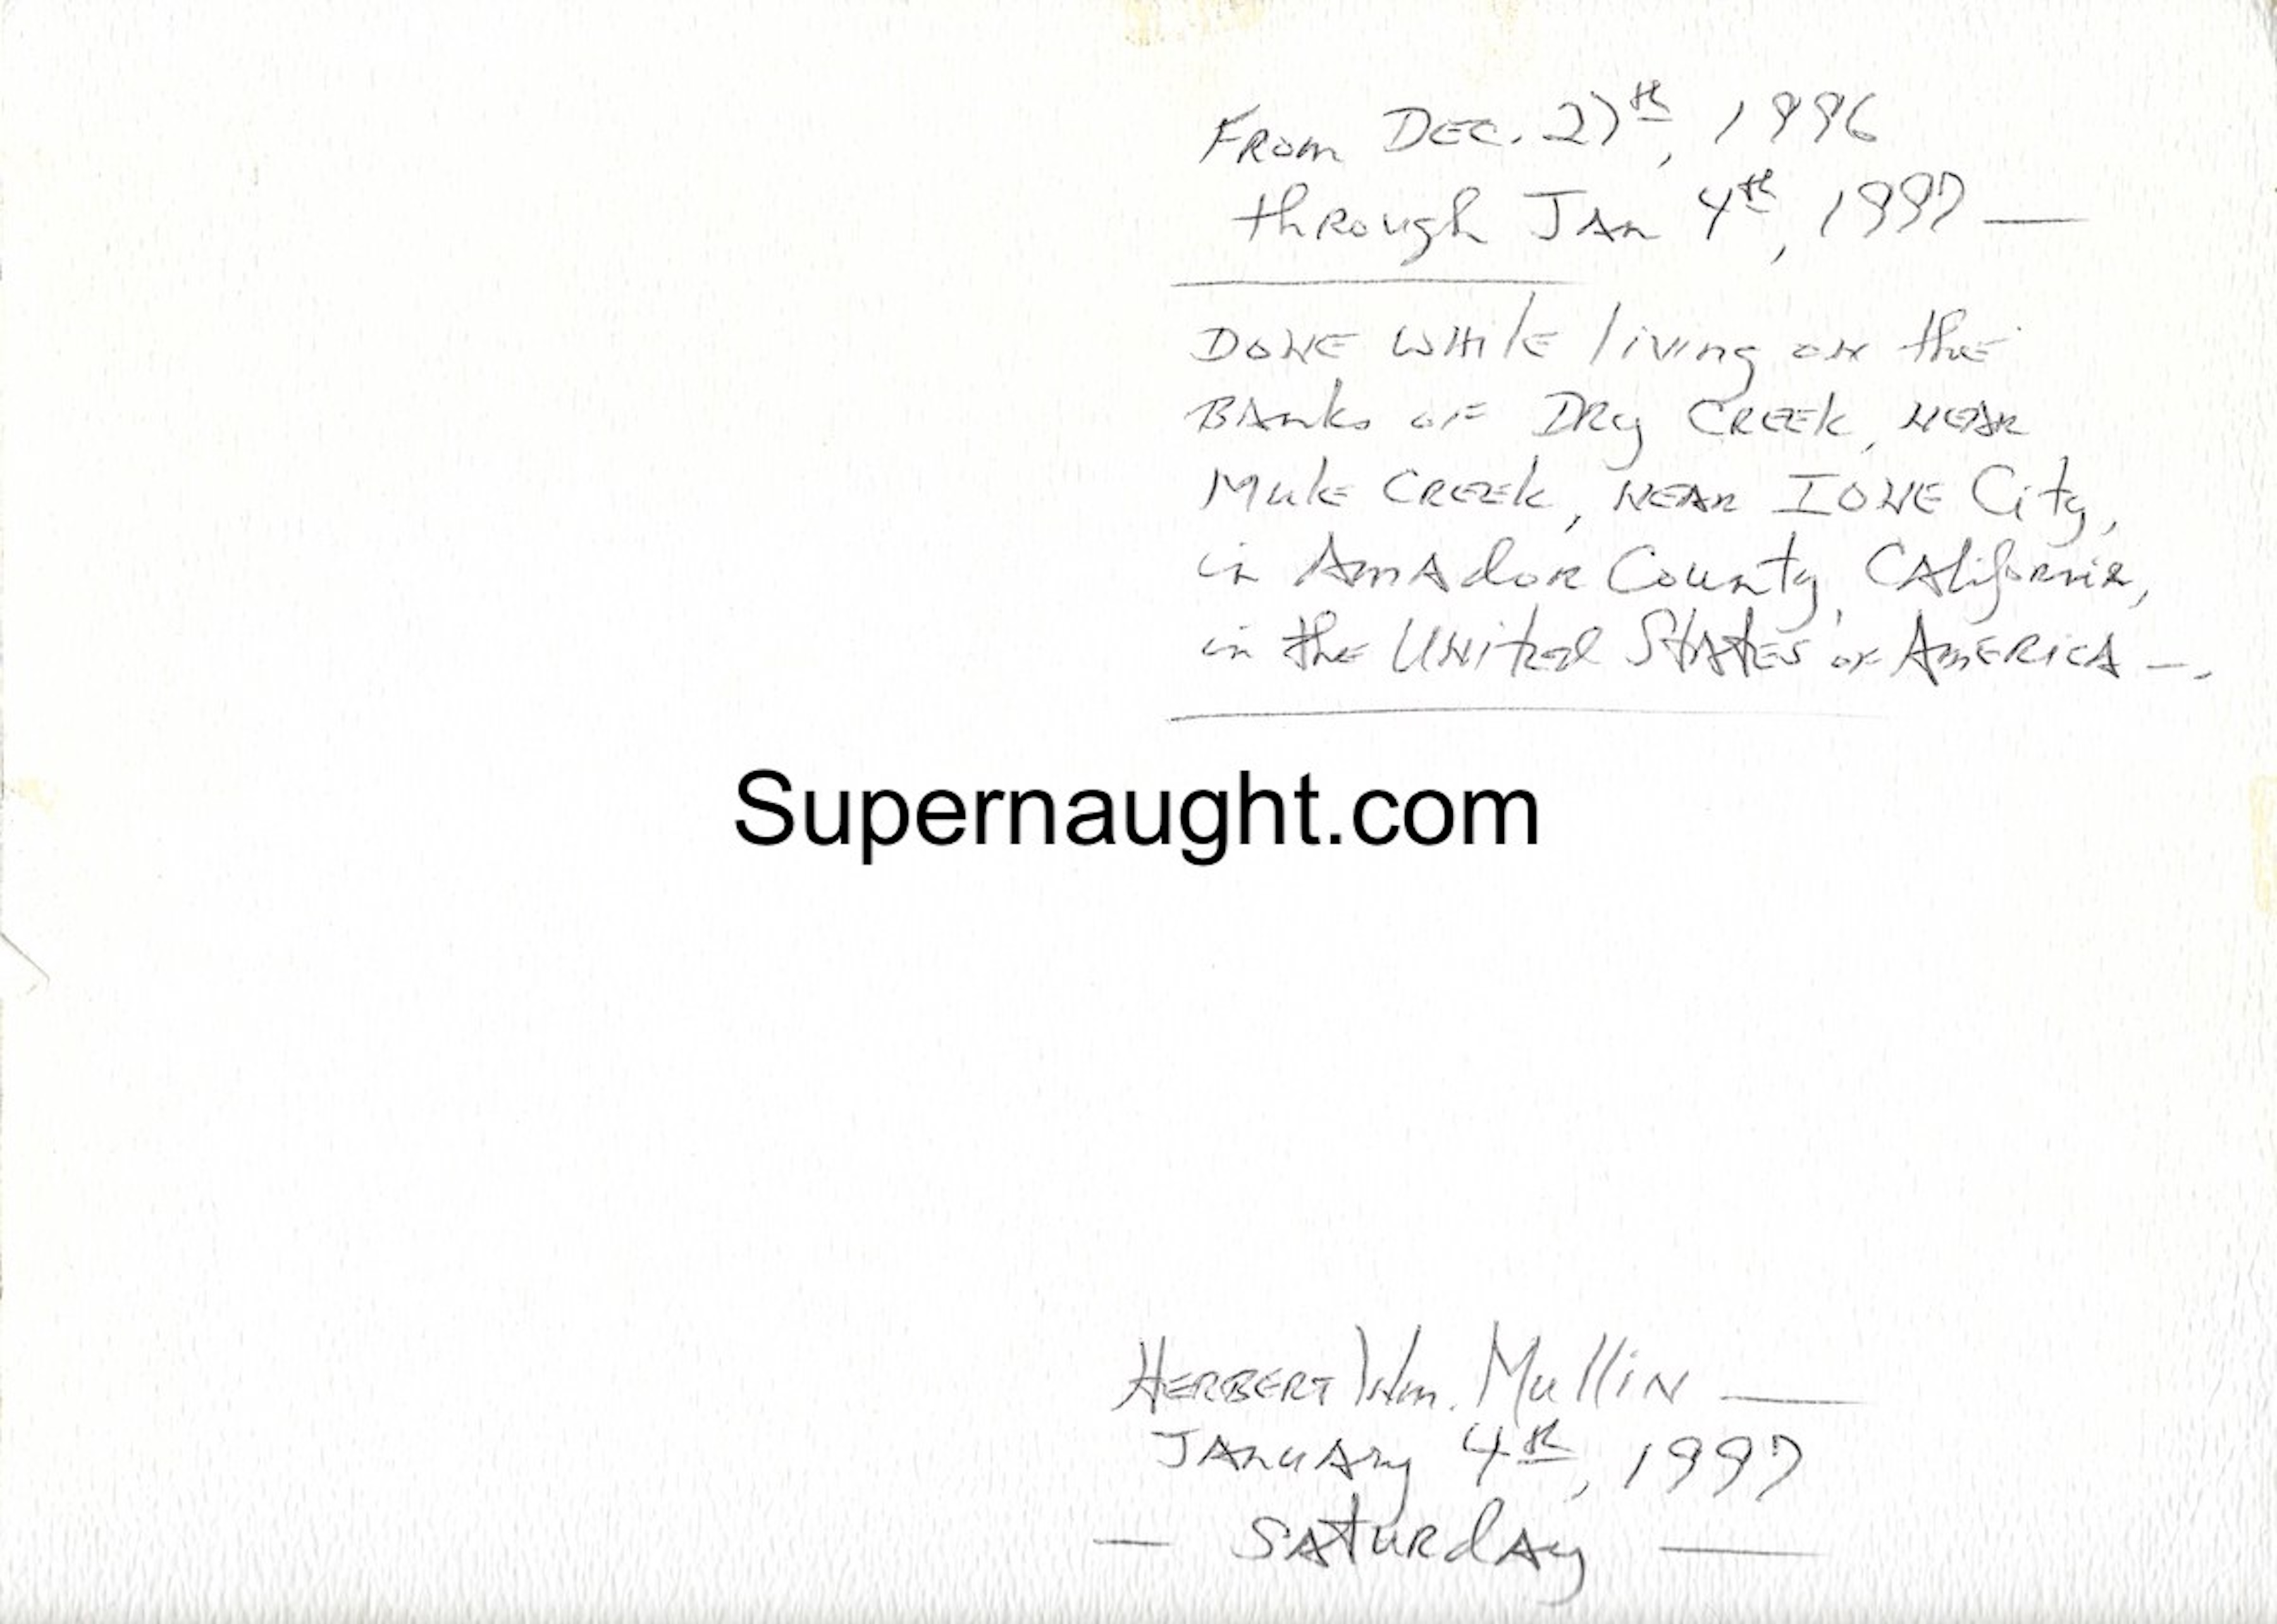 From Dec. 27th, 1996
through Jan 4th, 1997 —
Done while living on the
Banks of Dry Creek, near
Mule Creek, near Ione City,
in Amador County, California,
in the United States of America —.
Supernaught.com
Herbert Wm. Mullin —
January 4th, 1997
— Saturday —